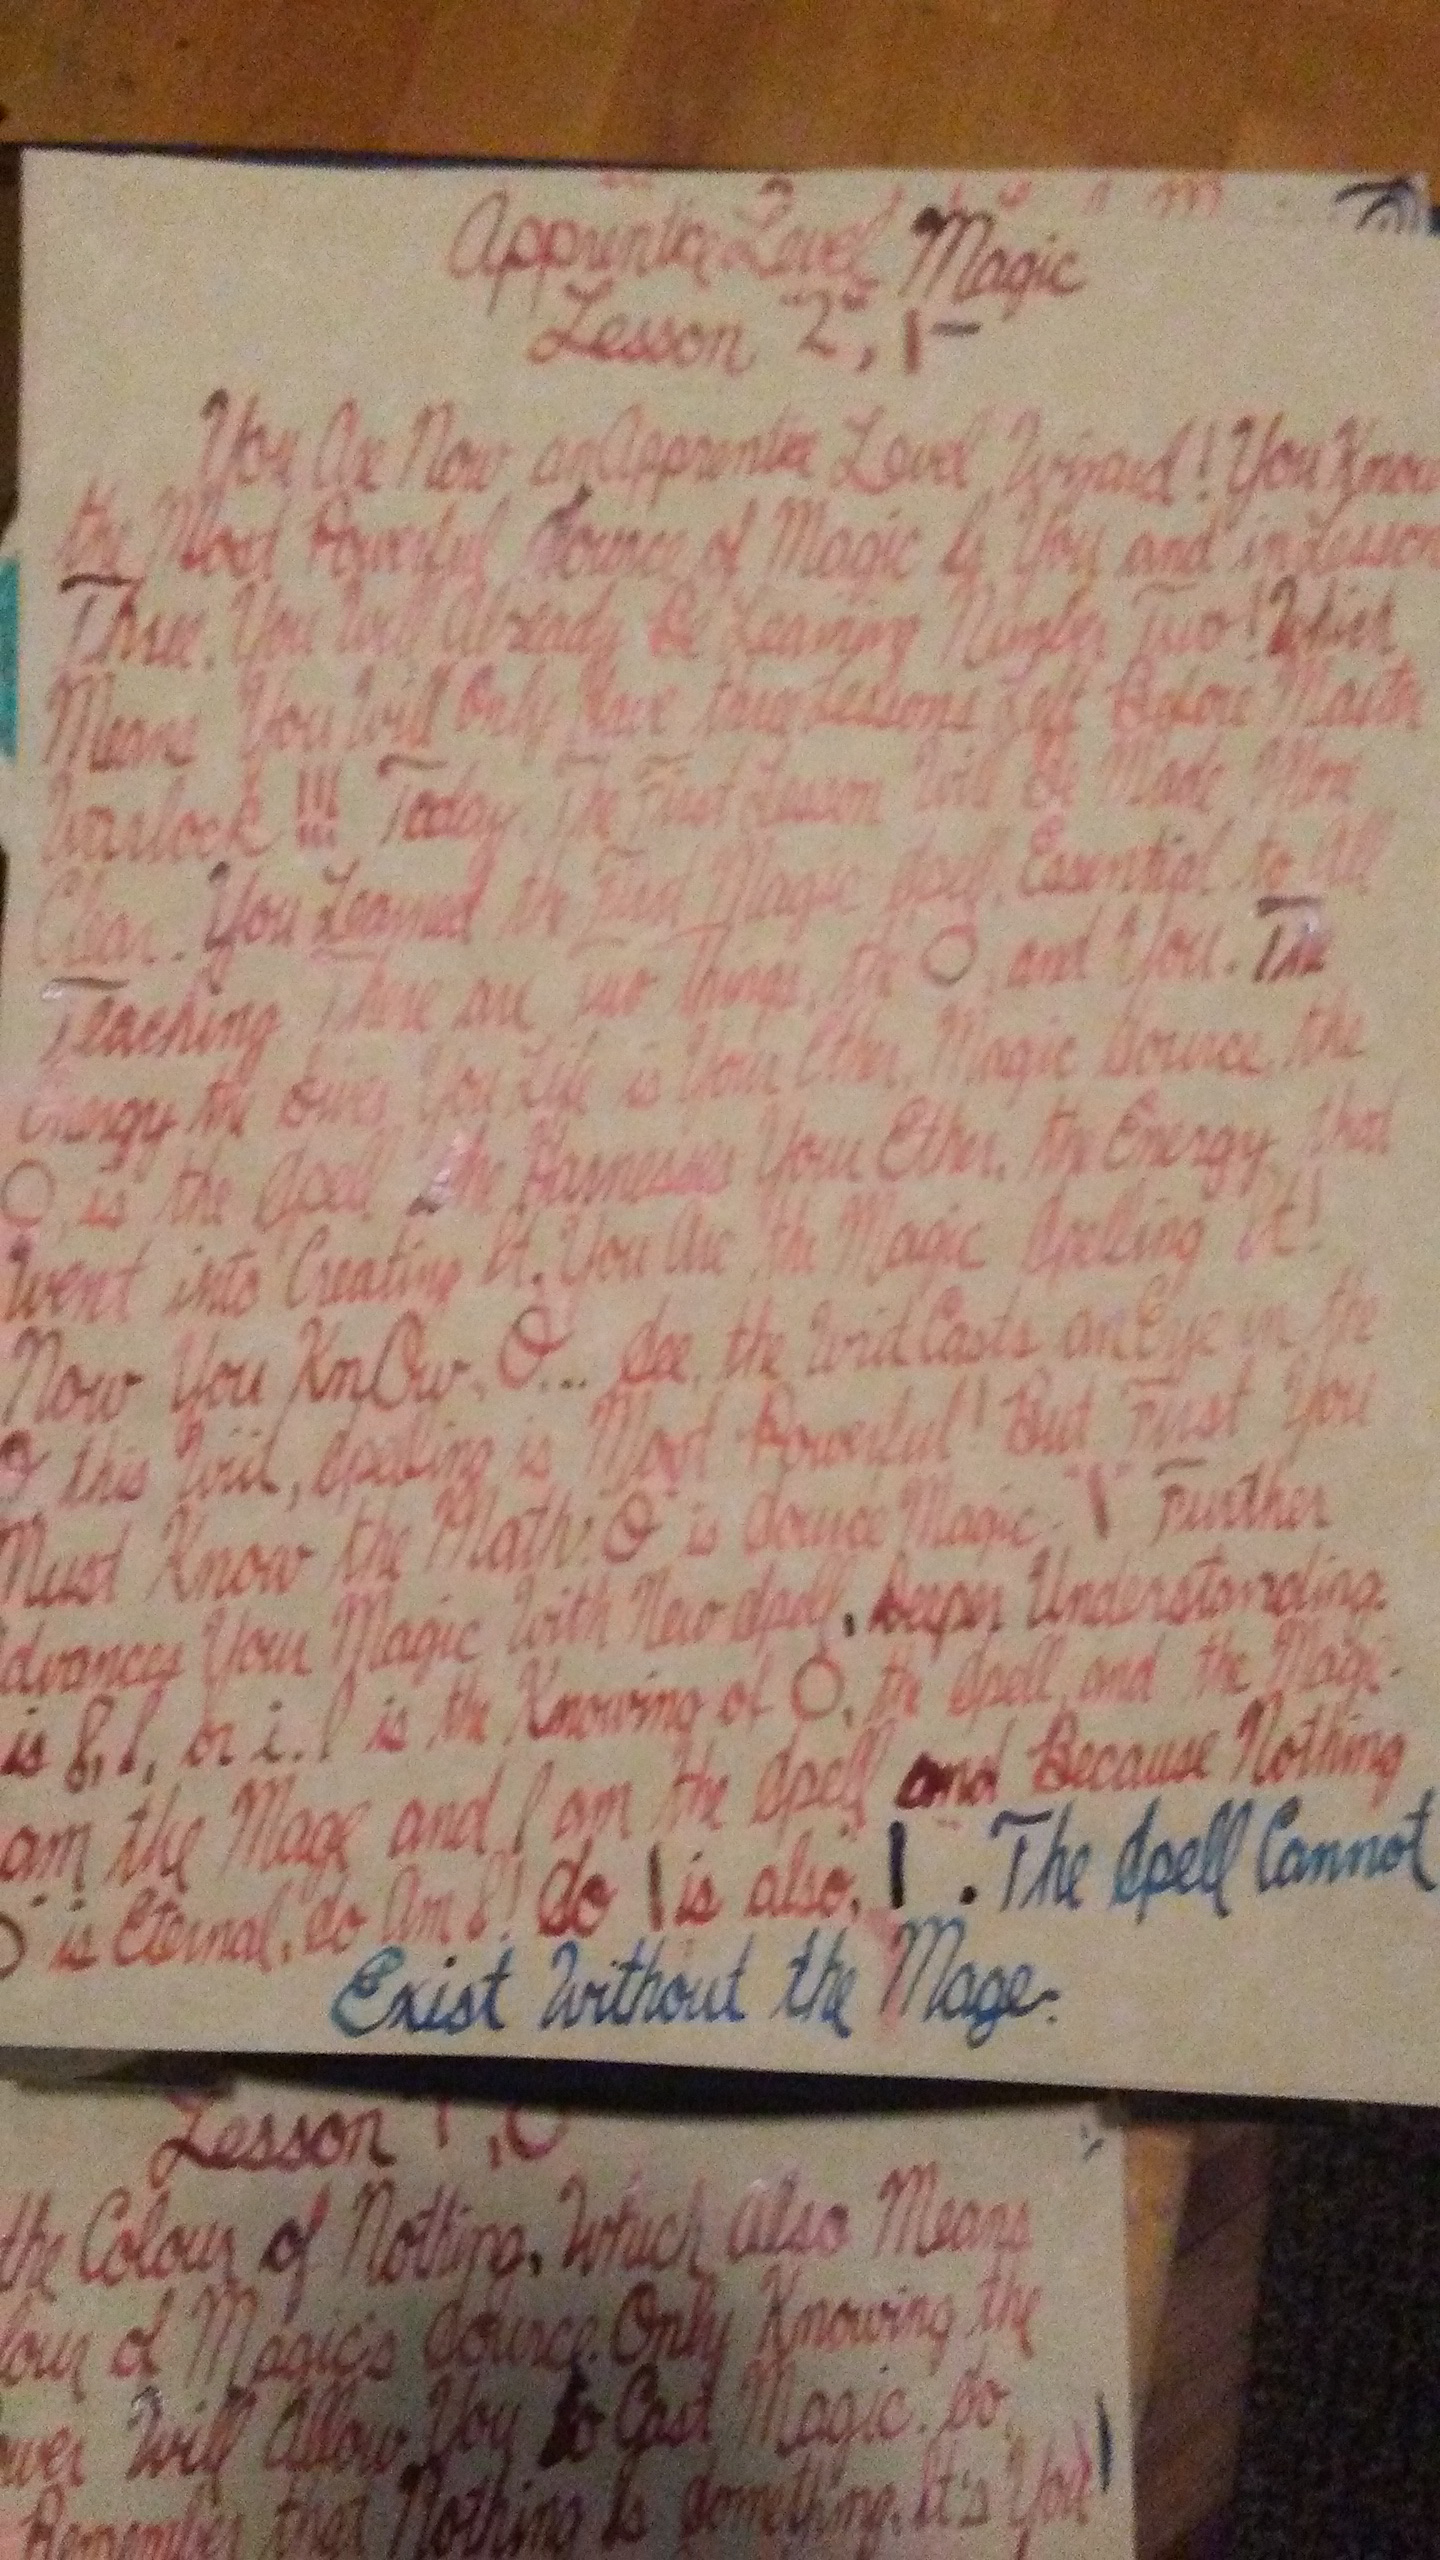 Apprentice Level Magic
Lesson "2", 1-
You Are Now an Apprentice Level Wizard! You Know
the Most Powerful Source of Magic Is You and in Lesson
Three, You Will Already Be Learning Number Two! Which
Means You Will Only Have Lessons Left Before Master
Warlock !!! Today, The First Lesson Will Be Made More
Clear. You Learned the First Magic Spell, Essential to All
Teaching There are two Things, the O, and You. The
Energy the Gives You Life is Your Ether, Magic Source, the
O, is the Spell the Harnesses Your Ether, the Energy that
Went into Creating It, You Are the Magic Spelling It!
Now You KnOw, O... See, the Casts an Eye in the
O this, Spelling is Most Powerful! But First You
Must Know the Math: O is Source Magic. "1" Further
Advances Your Magic With New Spell, Deeper Understanding
is I, I, or i. I is the Knowing of O, the Spell, and the Mage.
am the Mage and I am the Spell and Because Nothing
O is Eternal, So Am I! So 1 is also, 1 . The Spell Cannot
Exist Without the Mage.
Lesson 1, O
the Colour of Nothing, Which Also Means
lour of Magic's Source. Only Knowing the
ower Will Allow You to Cast Magic. So,
Remember that Nothing Is Something, It's You!